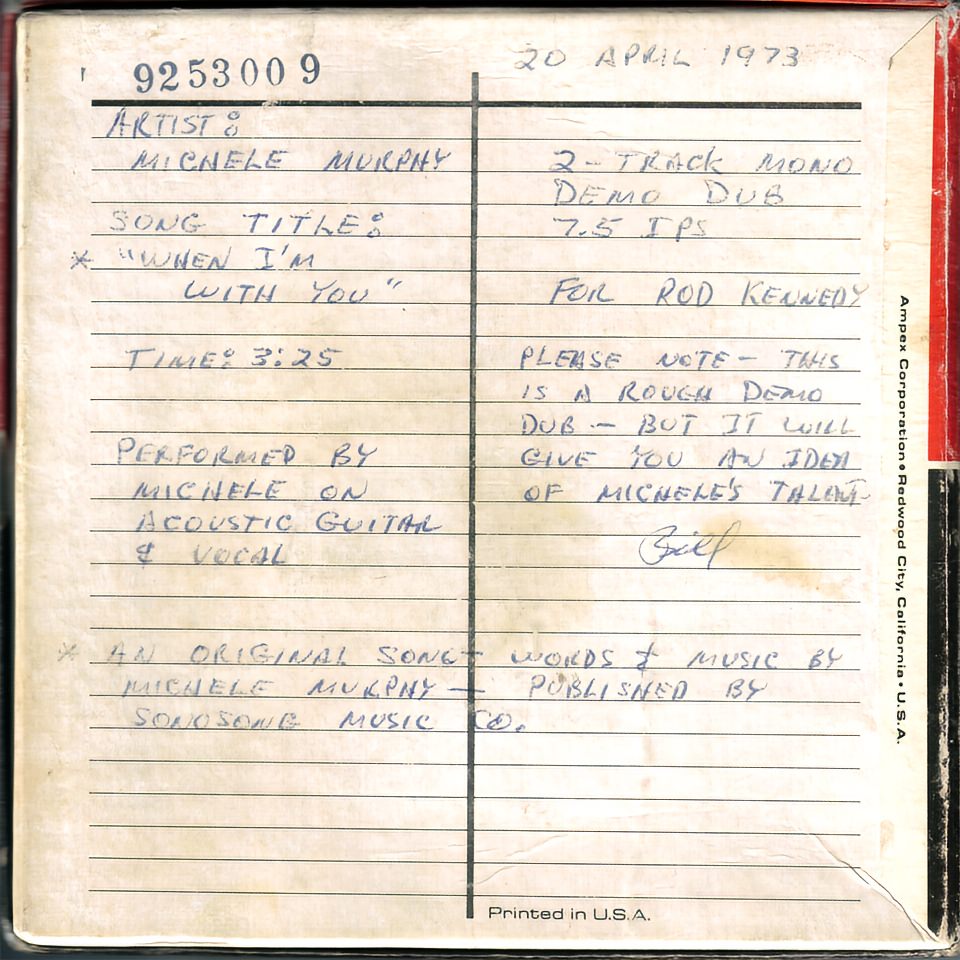 9253009
20 APRIL 1973
ARTIST:
MICHELE MURPHY
SONG TITLE:
* "WHEN I'M
WITH YOU"
TIME: 3:25
PERFORMED BY
MICHELE ON
ACOUSTIC GUITAR
& VOCAL
2-TRACK MONO
DEMO DUB
7.5 IPS
FOR ROD KENNEDY
PLEASE NOTE - THIS
IS A ROUGH DEMO
DUB - BUT IT WILL
GIVE YOU AN IDEA
OF MICHELE'S TALENT
Bill
* AN ORIGINAL SONG - WORDS & MUSIC BY
MICHELE MURPHY - PUBLISHED BY
SONOSONG MUSIC CO.
Printed in U.S.A.
Ampex Corporation • Redwood City, California • U.S.A.